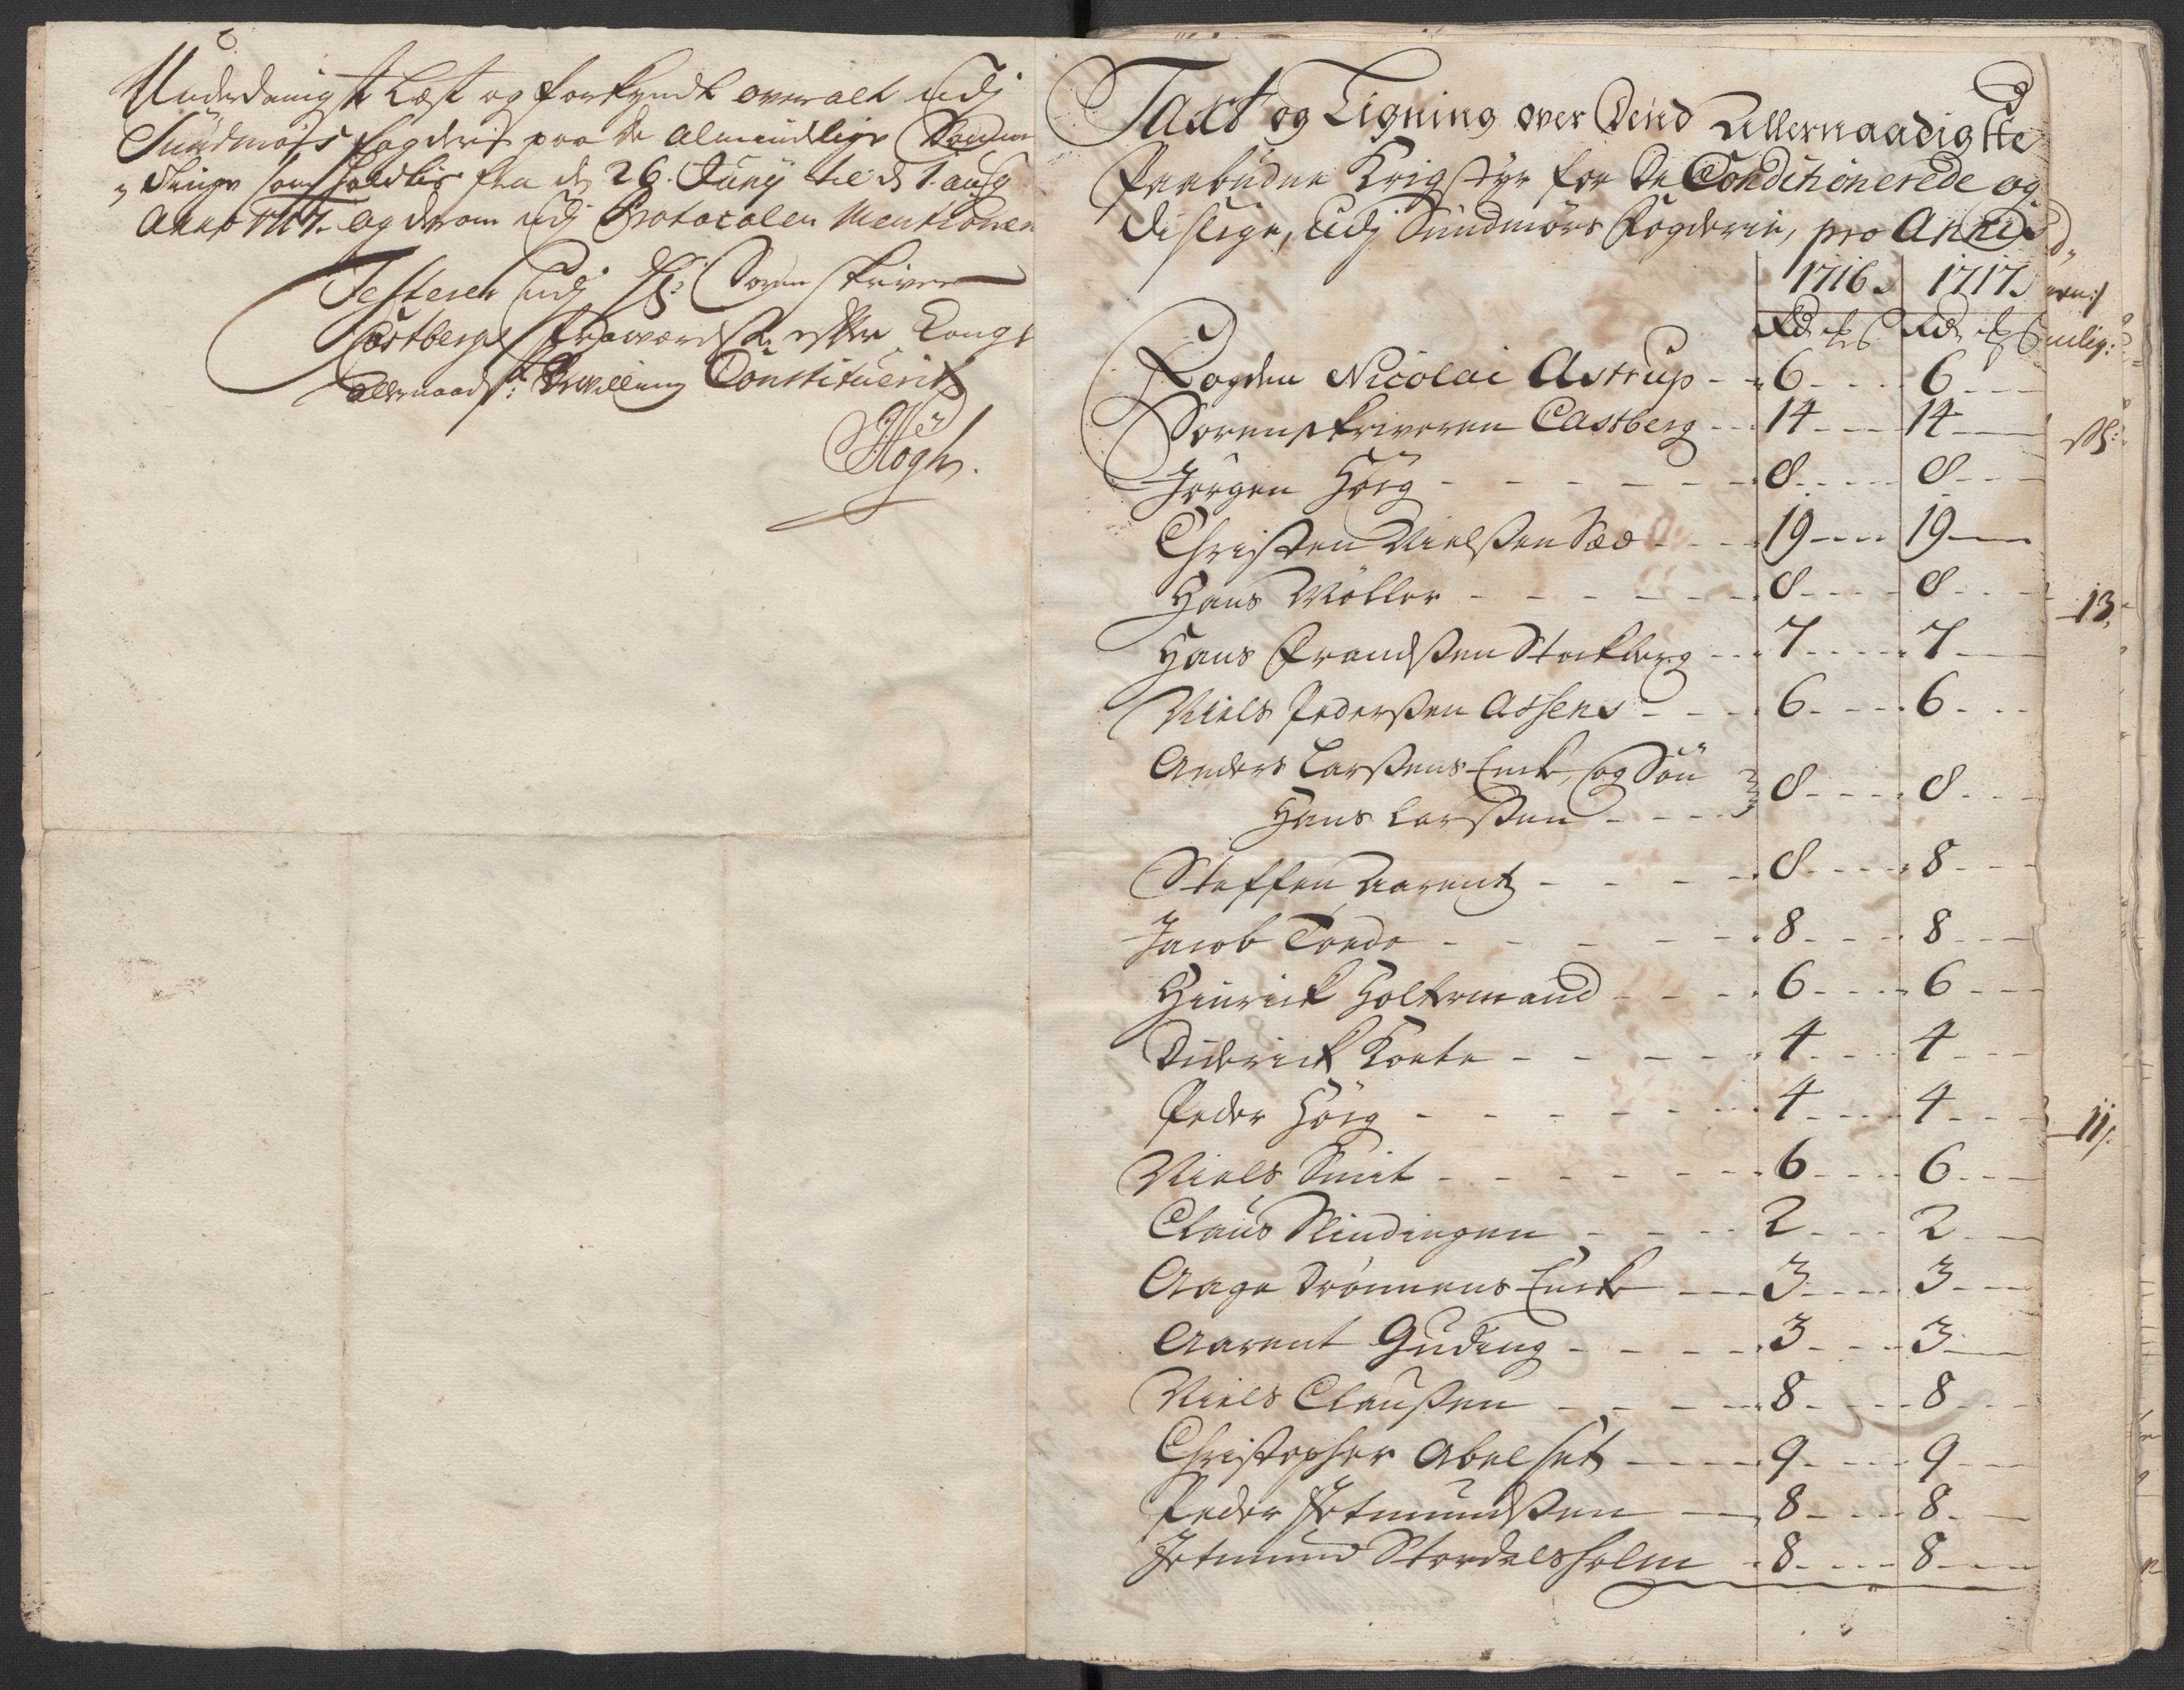 Underdanigst Læst og forkyndt overalt udj
Sundmørs fogderie paa de Almindelige Sommer
Tinge som holdtes fra d 26. Junij til d 1. aug
Anno 1717. og derom udj Protocolen Mentioner
Testerer udj Sr: Sorenskriver
Castbergs fraværelse efter Kongl
allernaadst: Bevilling Constituerit
Høgh.
Taxt og Ligning over Dend Allernaadigste
Paabudne Krigstyr for De Conditionerede og
deslige, udj Sundmørs Fogderie, pro Annis
1716. 1717.
Rd Rd
Fogden Nicolai Astrup - - 6 - - - 6
Sorenskriveren Castberg - - 14 - - - 14
Jørgen Høeg - - - 8 - - - 8
Christen Nielssen Sæd - - - 19 - - - 19
Hans Møller - - - 8 - - - 8
Hans Frandssen Stockberg - - 7 - - - 7
Niels Pederssen Assens - - - 6 - - - 6
Anders Larssens Encke, og Søn
Hans Larssen - - - 8 - - - 8
Steffen Aarentz - - - 8 - - - 8
Jacob Tordo - - - 8 - - - 8
Hinrick Holtermand - - - 6 - - - 6
Diderick Koete - - - 4 - - - 4
Peder Høeg - - - 4 - - - 4
Niels Smit - - - 6 - - - 6
Claus Nindingen - - - 2 - - - 2
Aage Drønnens Encke - - - 3 - - - 3
Aarent Guding - - - 3 - - - 3
Niels Claussen - - - 8 - - - 8
Christopher Abelset - - - 9 - - - 9
Peder Jetmundssen - - - 8 - - - 8
Jetmund Stordalsholm - - 8 - - - 8
13
11